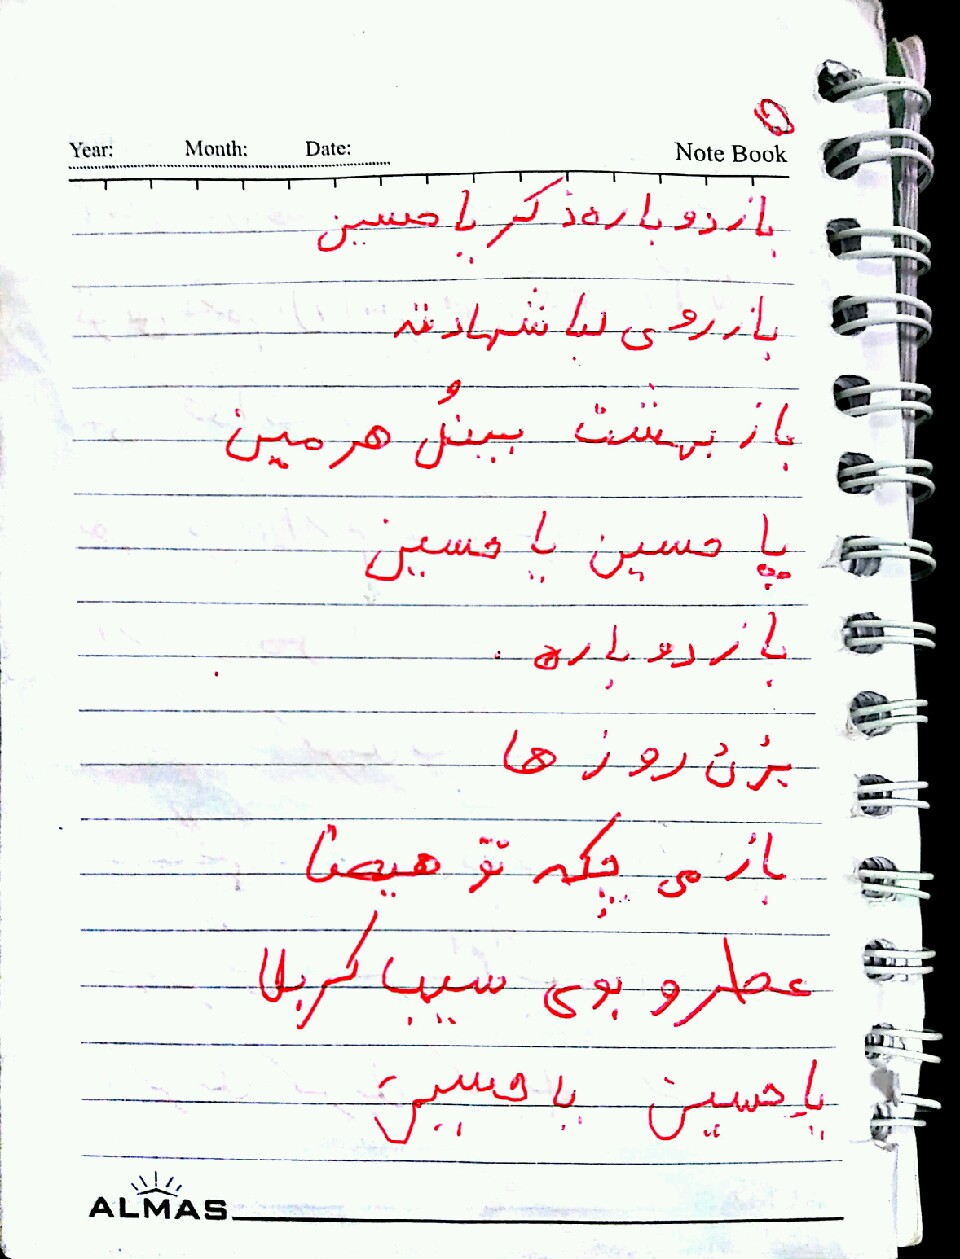 ۵
Year: Month: Date: Note Book
باز دوباره ذکر یا حسین
باز روی لبا شهادته
باز بهشت بین هر مین
یا حسین یا حسین
باز دوباره
بزن روز ها
باز می چکه تو
عطر و بوی سیب کربلا
یا حسین یا حسین
ALMAS